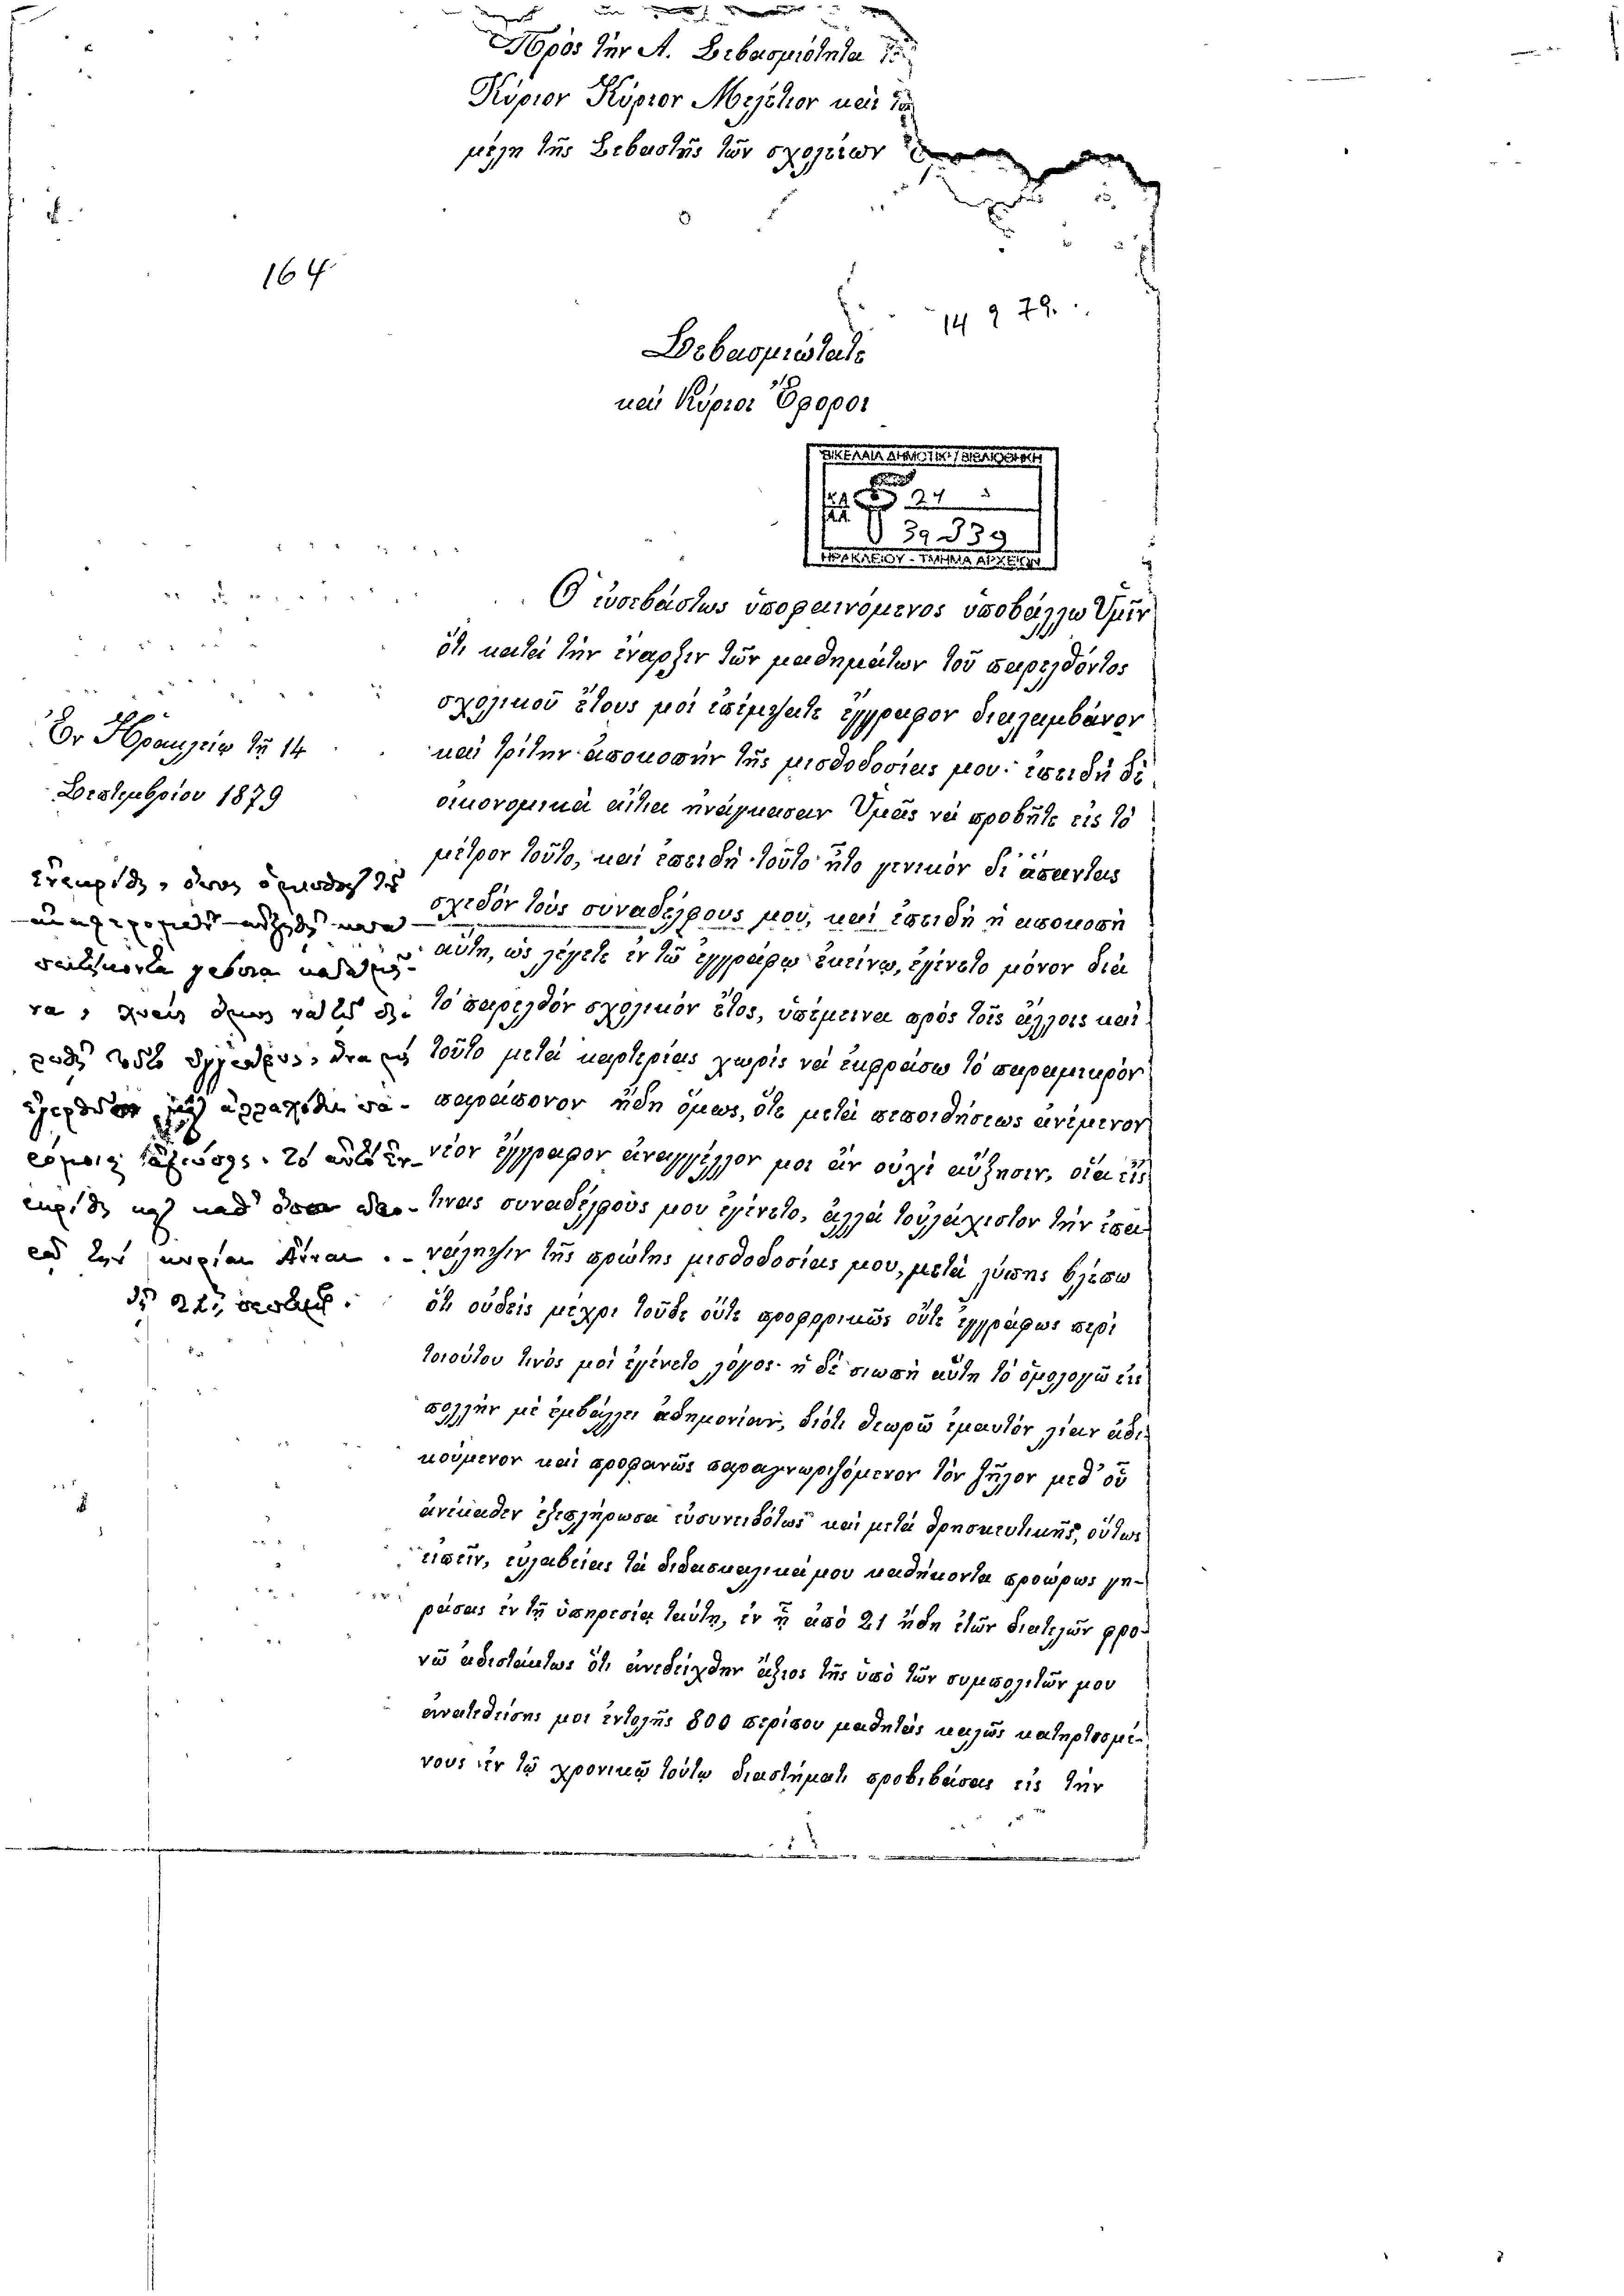 Πρὸς τὴν Α. Σεβασμιότητα τὸν
Κύριον Κύριον Μελέτιον καὶ τὰ
μέλη τῆς Σεβαστῆς τῶν σχολείων
164
14 9 79.
Σεβασμιώτατε
καὶ Κύριοι Ἔφοροι
ΒΙΚΕΛΑΙΑ ΔΗΜΟΤΙΚΗ ΒΙΒΛΙΟΘΗΚΗ
24
39 339
ΗΡΑΚΛΕΙΟΥ - ΤΜΗΜΑ ΑΡΧΕΙΩΝ
Ὁ εὐσεβάστως ὑποφαινόμενος ὑποβάλλω Ὑμῖν
ὅτι κατὰ τὴν ἔναρξιν τῶν μαθημάτων τοῦ παρελθόντος
σχολικοῦ ἔτους μοὶ ἐπέμψατε ἔγγραφον διαλαμβάνον
καὶ τρίτην ἀποκοπὴν τῆς μισθοδοσίας μου· ἐπειδὴ δὲ
οἰκονομικὰ αἴτια ἠνάγκασαν Ὑμᾶς νὰ προβῆτε εἰς τὸ
μέτρον τοῦτο, καὶ ἐπειδὴ τοῦτο ἦτο γενικὸν δι' ἅπαντας
σχεδὸν τοὺς συναδέλφους μου, καὶ ἐπειδὴ ἡ ἀποκοπὴ
αὕτη, ὡς λέγετε ἐν τῷ ἐγγράφῳ ἐκείνῳ, ἐγίνετο μόνον διὰ
τὸ παρελθὸν σχολικὸν ἔτος, ὑπέμεινα πρὸς τοῖς ἄλλοις καὶ
τοῦτο μετὰ καρτερίας χωρὶς νὰ ἐκφράσω τὸ παραμικρὸν
παράπονον ἤδη ὅμως, ὅτε μετὰ πεποιθήσεως ἀνέμενον
νέον ἔγγραφον ἀναγγέλλον μοι ἂν οὐχὶ αὔξησιν, οἵα εἰς
τινας συναδέλφους μου ἐγένετο, ἀλλὰ τοὐλάχιστον τὴν ἐπα-
νάληψιν τῆς πρώτης μισθοδοσίας μου, μετὰ λύπης βλέπω
ὅτι οὐδεὶς μέχρι τοῦδε οὔτε προφορικῶς οὔτε ἐγγράφως περὶ
τοιούτου τινὸς μοὶ ἐγένετο λόγος· ἡ δὲ σιωπὴ αὕτη τὸ ὁμολογῶ εἰς
πολλὴν μὲ ἐμβάλλει ἀδημονίαν, διότι θεωρῶ ἐμαυτὸν λίαν ἀδι-
κούμενον καὶ προφανῶς παραγνωριζόμενον τὸν ζῆλον μεθ' οὗ
ἀνέκαθεν ἐξεπλήρωσα εὐσυνειδότως καὶ μετὰ θρησκευτικῆς, οὕτως
εἰπεῖν, εὐλαβείας τὰ διδασκαλικά μου καθήκοντα προώρως γη-
ράσας ἐν τῇ ὑπηρεσίᾳ ταύτῃ, ἐν ᾗ ἀπὸ 21 ἤδη ἐτῶν διατελῶν φρο-
νῶ ἀδιστάκτως ὅτι ἀνεδείχθην ἄξιος τῆς ὑπὸ τῶν συμπολιτῶν μου
ἀνατεθείσης μοι ἐντολῆς 800 περίπου μαθητὰς καλῶς κατηρτισμέ-
νους ἐν τῷ χρονικῷ τούτῳ διαστήματι προβιβάσας εἰς τὴν
Ἐν Ἡρακλείῳ τῇ 14
Σεπτεμβρίου 1879
ἐνεκρίθη, ὅπως ὁ μισθὸς τοῦ
αὐξηθῇ κατὰ